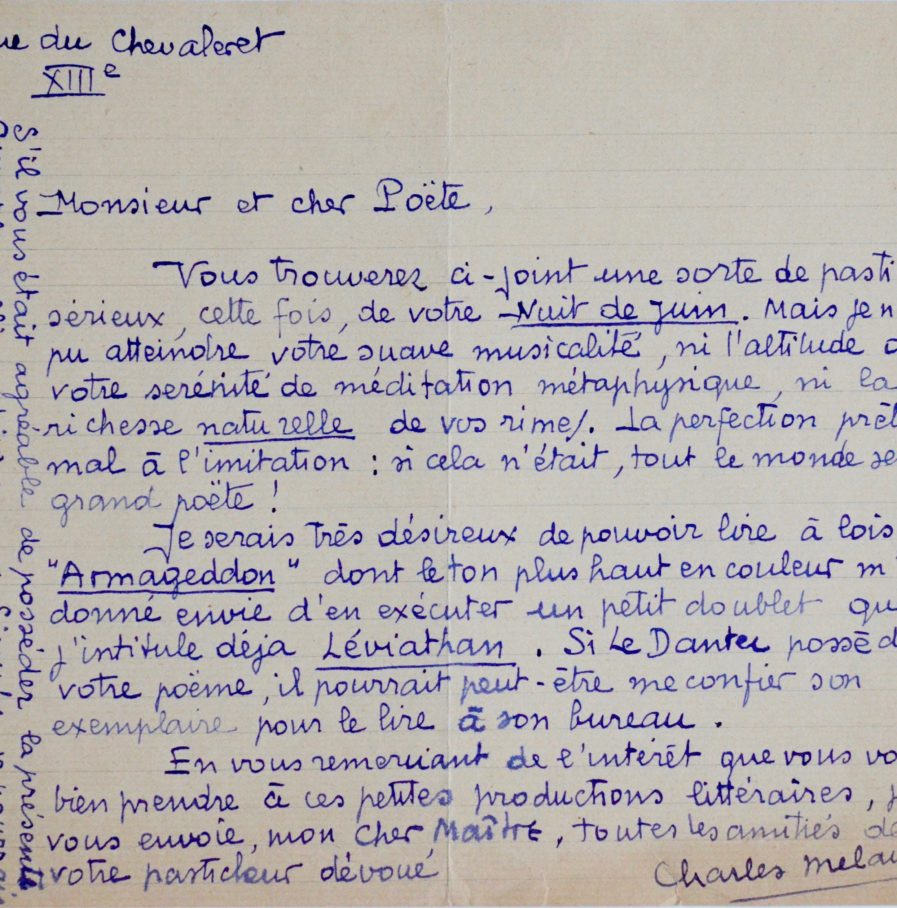 ue du Chevaleret
XIIIe
Monsieur et cher Poëte,
Vous trouverez ci-joint une sorte de pasti
sérieux, cette fois, de votre Nuit de Juin. Mais je n
pu atteindre votre suave musicalité, ni l'altitude d
votre serénité de méditation métaphysique, ni la
richesse naturelle de vos rimes. La perfection prêt
mal à l'imitation : si cela n'était, tout le monde se
grand poëte !
Je serais très désireux de pouvoir lire à lois
"Armageddon" dont le ton plus haut en couleur m'
donné envie d'en exécuter un petit doublet qu
j'intitule déja Léviathan. Si Le Dantec possèd
votre poëme, il pourrait peut-être me confier son
exemplaire pour le lire à son bureau.
En vous remerciant de l'intérêt que vous vo
bien prendre à ces petites productions littéraires, j
vous envoie, mon cher Maître, toutes les amitiés de
votre pasticheur dévoué
Charles Melau
S'il vous était agréable de posséder la présente